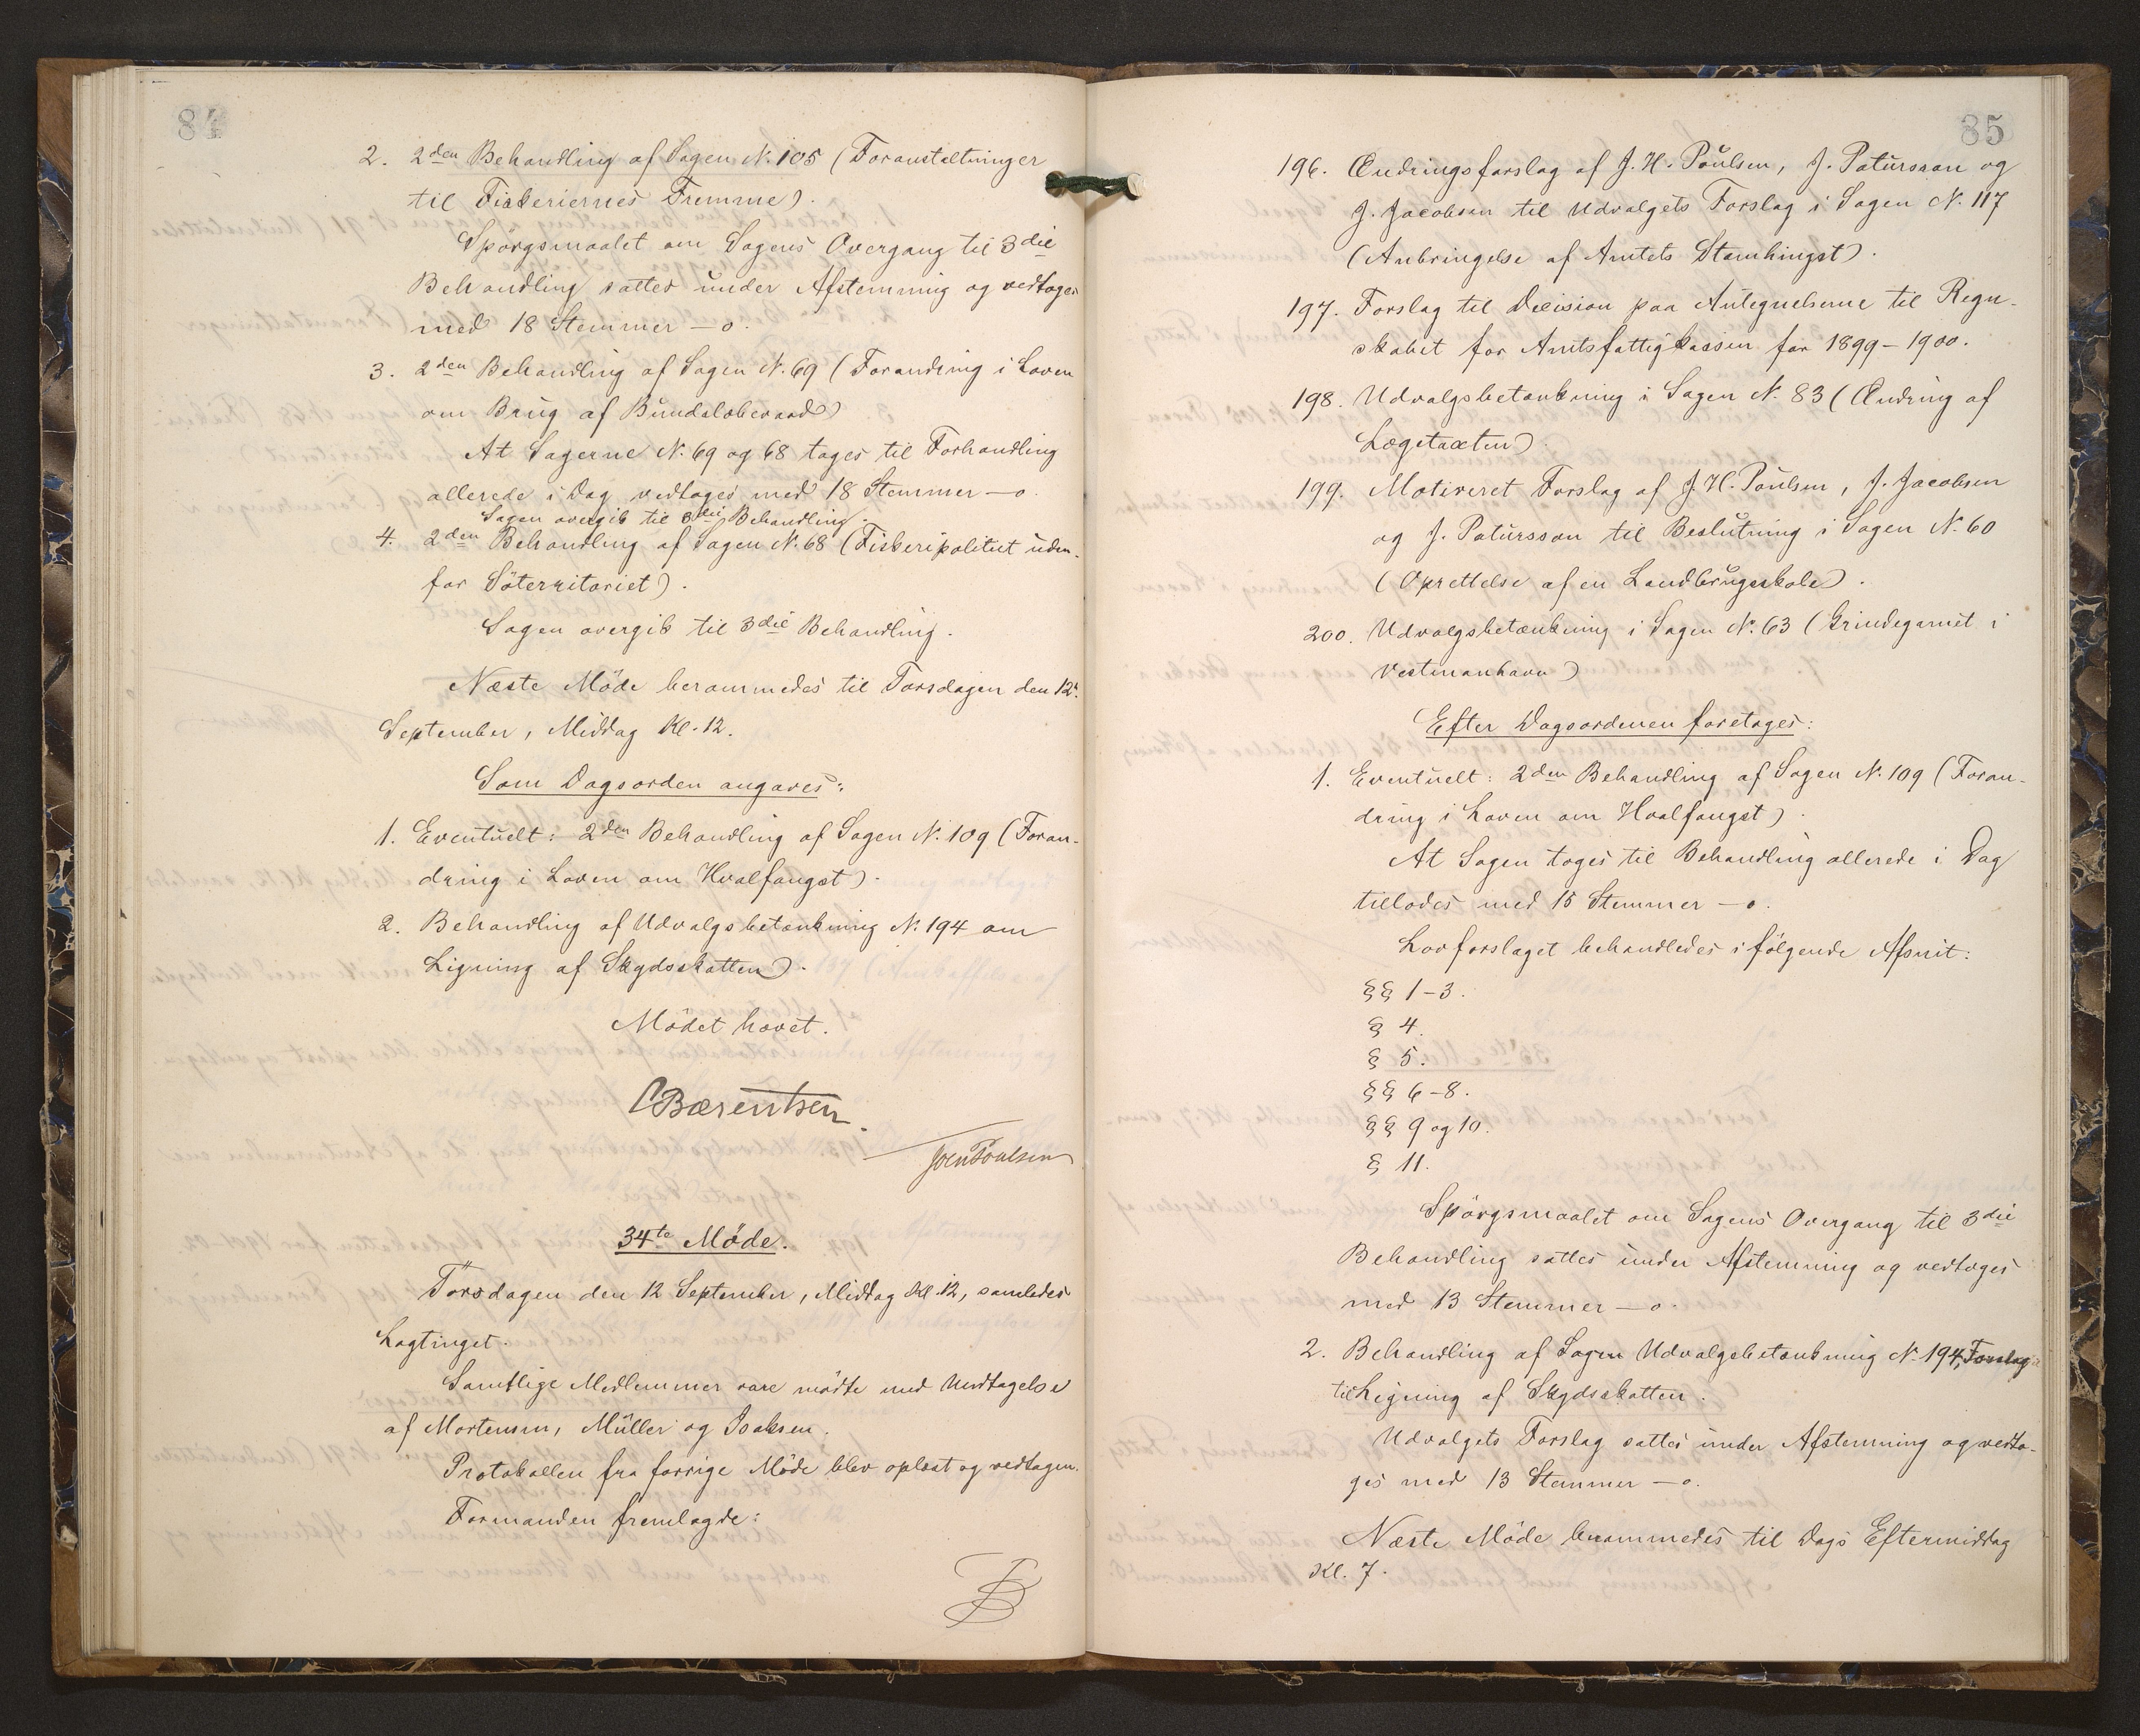 84
2. 2den Behandling af Sagen N. 105 (Foranstaltninger
til Fiskeriernes Fremme).
Spörgsmaalet om Sagens Overgang til 3die
Behandling sattes under Afstemning og vedtoges
med 18 Stemmer — o.
3. 2den Behandling af Sagen N. 69 (Forandring i Loven
om Brug af Bundslæbevaad)
At Sagerne N. 69 og 68 toges til Forhandling
allerede i Dag vedtoges med 18 Stemmer — o.
Sagen overgik til 3die Behandling.
4. 2den Behandling af Sagen N. 68 (Fiskeripolitiet uden-
for Söterritoriet).
Sagen overgik til 3die Behandling.
Næste Möde berammedes til Torsdagen den 12.
September, Middag Kl. 12.
Som Dagsorden angaves:
1. Eventuelt: 2den Behandling af Sagen N. 109 (Foran-
dring i Loven om Hvalfangst).
2. Behandling af Udvalgsbetænkning N. 194 om
Ligning af Skydsskatten).
Mödet hævet.
CBærentsen.
Joen Poulsen
34te Möde.
Torsdagen den 12 September, Middag Kl. 12, samledes
Lagtinget.
Samtlige Medlemmer vare mödte med Undtagelse
af Mortensen, Müller og Isaksen.
Protokollen fra forrige Möde blev oplæst og vedtagen.
Formanden fremlagde:
85
196. Ændringsforslag af J. H. Poulsen, J. Patursson og
J. Jacobsen til Udvalgets Forslag i Sagen N. 117
(Anbringelse af Amtets Stamhingst).
197. Forslag til Decision paa Antegnelserne til Regn-
skabet for Amtsfattigkassen for 1899–1900.
198. Udvalgsbetænkning i Sagen N. 83 (Ændring af
Lægetaxten).
199. Motiveret Forslag af J. H. Poulsen, J. Jacobsen
og J. Patursson til Beslutning i Sagen N. 60
(Oprettelse af en Landbrugsskole).
200. Udvalgsbetænkning i Sagen N. 63 (Grindegarnet i
Vestmanhavn)
Efter Dagsordenen foretoges:
1. Eventuelt: 2den Behandling af Sagen N. 109 (Foran-
dring i Loven om Hvalfangst).
At Sagen toges til Behandling allerede i Dag
tillodes med 15 Stemmer — o.
Lovforslaget behandledes i fölgende Afsnit:
§§ 1–3.
§ 4.
§ 5.
§§ 6–8.
§§ 9 og 10.
§ 11.
Spörgsmaalet om Sagens Overgang til 3die
Behandling sattes under Afstemning og vedtoges
med 13 Stemmer — o.
2. Behandling af Sagen Udvalgsbetænkning N. 194, Forslag
til Ligning af Skydsskatten.
Udvalgets Forslag sattes under Afstemning og vedto-
ges med 13 Stemmer — o.
Næste Möde berammedes til Dags Eftermiddag
Kl. 7.